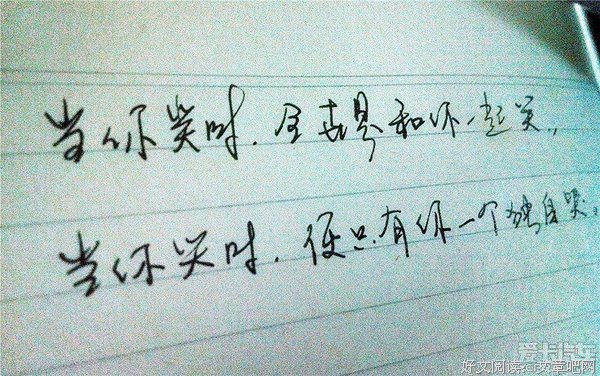 当你笑时,全世界和你一起笑,,
当你哭时,便只有你一个独自哭。
爱卡汽车
好文阅读:文章吧网